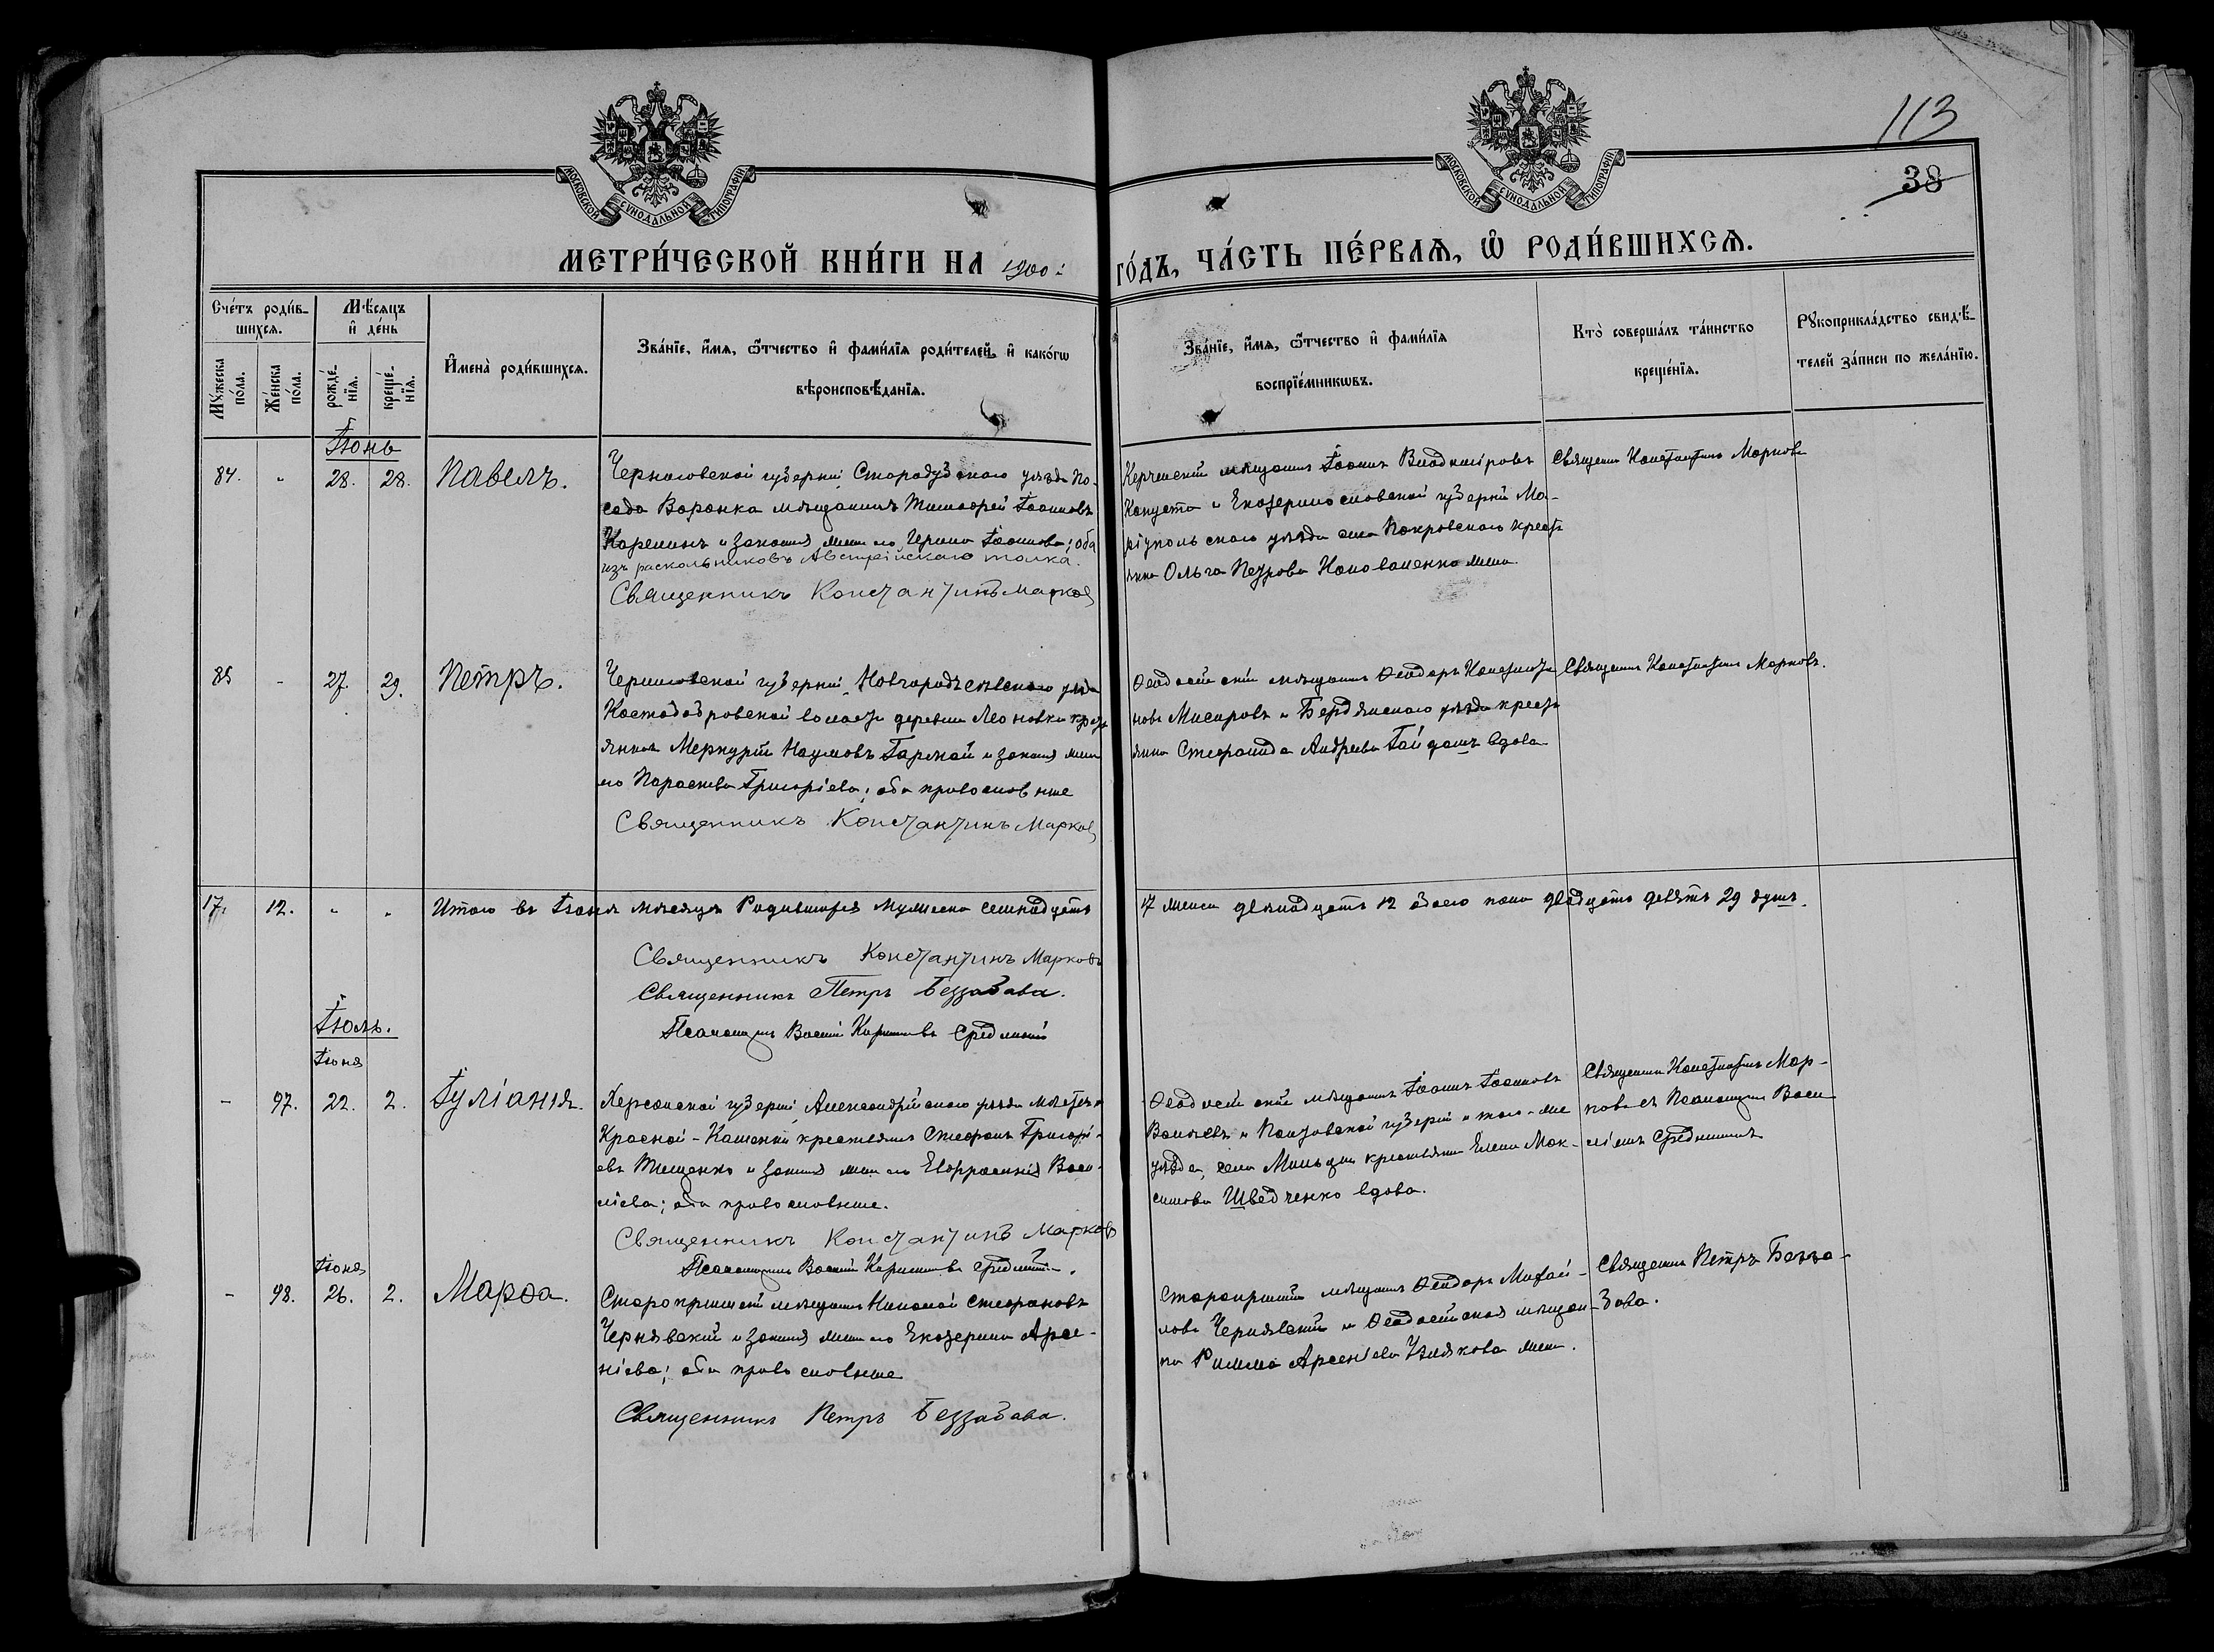 113
38
МОСКОВСКОЙ СѴНОДАЛЬНОЙ ТИПОГРАФІИ
МОСКОВСКОЙ СѴНОДАЛЬНОЙ ТИПОГРАФІИ
МЕТРИ́ЧЕСКОЙ КНИ́ГИ НА 1900 ГО́ДЪ, ЧА́СТЬ ПЕ́РВАѦ, Ѽ РОДИ́ВШИХСѦ.
Сче́тъ роди́в-
шихсѧ.
Мꙋ́жеска
по́ла.
Же́нска
по́ла.
Мѣ́сѧцъ
и҆ де́нь
рожде́-
нїѧ.
креще́-
нїѧ.
И҆мена̀ роди́вшихсѧ.
Зва́нїе, и҆́мѧ, ѻ҆́тчество и҆ фами́лїѧ роди́телей, и҆ како́гѡ
вѣроисповѣ́данїѧ.
Зва́нїе, и҆́мѧ, ѻ҆́тчество и҆ фами́лїѧ
воспрїе́мникѡвъ.
Кто̀ соверша́лъ та́инство
креще́нїѧ.
Рꙋкоприкла́дство свидѣ́-
телей за́писи по жела́нїю.
Іюнь
84. " 28. 28. Павелъ.
Черниговской губерніи Стародубскаго уѣзда по-
сада Воронка мѣщанинъ Тимофей Іоанновъ
Карелинъ и законная жена его Ирина Іоаннова; оба
изъ раскольниковъ Австрійскаго толка.
Священникъ Константинъ Марковъ
Керченскій мѣщанинъ Іоаннъ Владиміровъ
Капуста и Екатеринославской губерніи Ма-
ріупольскаго уѣзда села Покровскаго крестъ
янка Ольга Петрова Коноваленко жена
Священн Константинъ Марковъ
85 - 27. 29. Петръ.
Черниговской губерніи, Новгородсѣвскаго уѣзда
Костобобровской волости деревни Леоновки крест
янинъ Меркурій Наумовъ Гармай и законная жена
его Параскева Григоріева; оба православные
Священникъ Константинъ Марковъ
Ѳеодосійскій мѣщанинъ Ѳеодоръ Константи
новъ Мисировъ и Бердянскаго уѣзда кресть
янка Стефанида Андреева Гайдашъ вдова
Священникъ Константинъ Марковъ.
17. 12. " " Итого въ Іюнѣ мѣсяцѣ Родившихся мужеска семнадцать
17 женска двѣнадцать 12 обоего пола двадцать девять 29 душъ.
Священникъ Константинъ Марковъ
Священникъ Петръ Беззабава.
Псаломщикъ Василій Средницкій
Іюль.
Іюня
- 97. 22. 2. Іуліанія.
Херсонской губерніи Александрійскаго уѣзда мѣстечка
Красной-Каменки крестьянинъ Стефанъ Григорі-
евъ Тищенко и законная жена его Евфросинія Васи-
ліева; оба православные.
Священникъ Константинъ Марковъ
Псаломщикъ Василій
Ѳеодосійскій мѣщанинъ Іоаннъ Іоанновъ
и Полтавской губерніи и того-же
уѣзда, села крестьянка Елена Мак-
симова Шведченко вдова.
Священникъ Константинъ Мар-
ковъ съ Псаломщик Васи
ліемъ
Іюня
- 98. 26. 2. Марѳа.
Старокрымскій мѣщанинъ Николай Стефановъ
Чернявскій и законная жена его Екатерина Арсе-
ніева; оба православные
Священникъ Петръ Беззабава.
Старокрымскій мѣщанинъ Ѳеодоръ Михай-
ловъ Чернявскій и Ѳеодосійская мѣщан-
ка Римма Арсеніева жена.
Священникъ Петръ Безза-
бава.